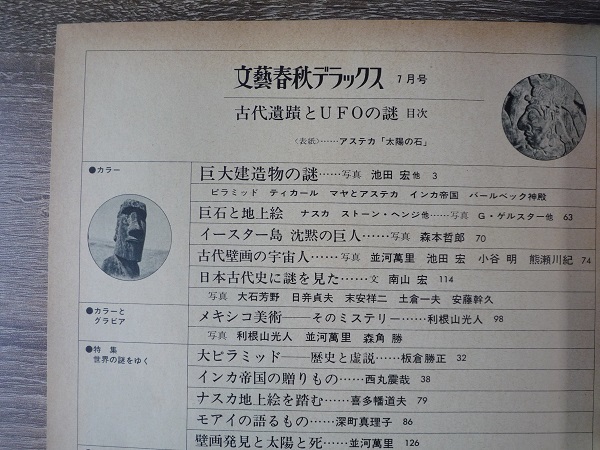 文藝春秋デラックス 7月号
古代遺蹟とUFOの謎 目次
〈表紙〉……アステカ「太陽の石」
●カラー
巨大建造物の謎……写真 池田 宏他 3
ピラミッド ティカール マヤとアステカ インカ帝国 バールベック神殿
巨石と地上絵 ナスカ ストーン・ヘンジ他……写真 G・ゲルスター他 63
イースター島 沈黙の巨人……写真 森本哲郎 70
古代壁画の宇宙人……写真 並河萬里 池田 宏 小谷 明 熊瀬川紀 74
日本古代史に謎を見た……文 南山 宏 114
写真 大石芳野 日弁貞夫 末安祥二 土倉一夫 安藤幹久
●カラーと
グラビア
メキシコ美術――そのミステリー……利根山光人 98
写真 利根山光人 並河萬里 森角 勝
●特 集
世界の謎をゆく
大ピラミッド――歴史と虚説……板倉勝正 32
インカ帝国の贈りもの……西丸震哉 38
ナスカ地上絵を踏む……喜多幡道夫 79
モアイの語るもの……深町真理子 86
壁画発見と太陽と死……並河萬里 126